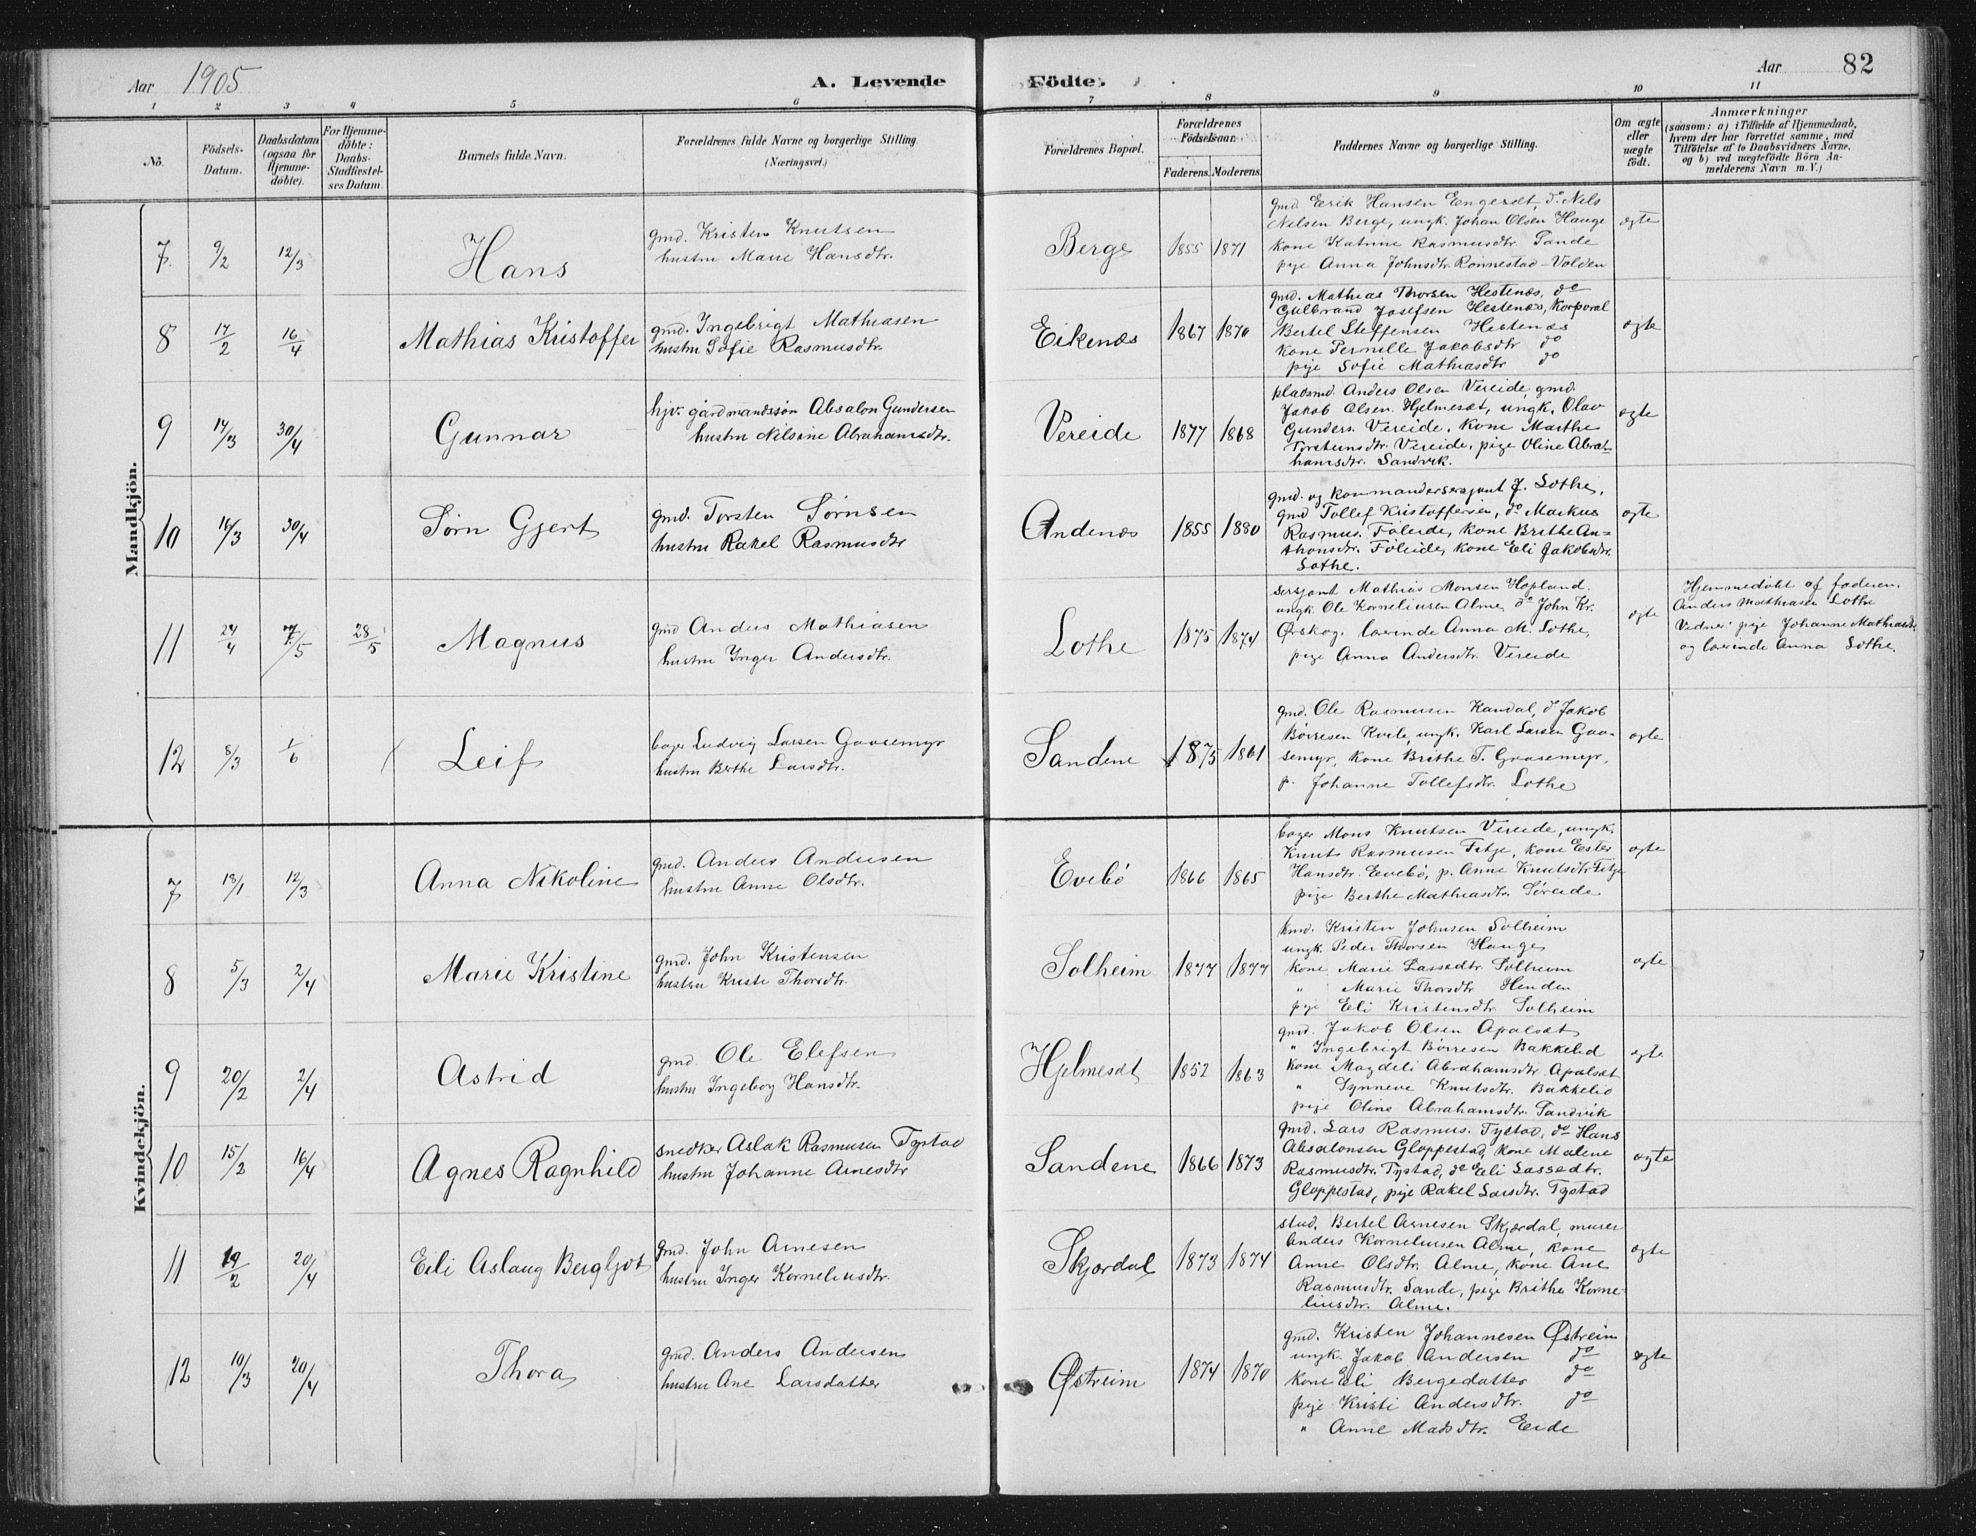 Aar 1905
A. Levende Födte.
Aar 82
1 2 3 4 5 6 7 8 9 10 11
No.
Födsels-Datum.
Daabsdatum (ogsaa for Hjemme-döbte).
For Hjemme-döbte: Daabs-Stadfæstel-ses Datum.
Barnets fulde Navn.
Forældrenes fulde Navne og borgerlige Stilling. (Næringsvei.)
Forældrenes Bopæl.
Forældrenes Födselsaar.
Faderens. Moderens.
Faddernes Navne og borgerlige Stilling.
Om ægte eller uægte födt.
Anmærkninger
(saasom: a) i Tilfælde af Hjemmedaab,
hvem der har forrettet samme, med
Tilföielse af to Daabsvidners Navne,
og b) ved uægtefödte Börn An-
melderens Navn m. V.)
Mandkjön.
7 9/2 12/3 Hans
gmd. Kristen Knutsen
hustru Marie Hansdtr.
Berge 1855 1871
gmd Erik Hansen Engeset, do Nils
Nilsen Berge, ungk. Johan Olsen Hauge
kone Katrine Rasmusdtr. Sande
pige Anna Johnsdtr. Rønnestad-Volden
ægte
8 17/2 16/4 Mathias Kristoffer
gmd. Ingebrigt Mathiasen
hustru Sofie Rasmusdtr.
Eikenæs 1867 1870
gmd. Mathias Thorsen Hestenæs, do
Gulbrand Josefsen Hestenæs, Korporal
Bertel Steffensen Hestenæs
kone Pernille Jakobsdtr do
pige Sofie Mathiasdtr do
ægte
9 14/3 30/4 Gunnar
hjv. gårdmandssøn Absalon Gundersen
hustru Nilsine Abrahamsdtr.
Vereide 1877 1868
pladsmd. Anders Olsen Vereide, gmd.
Jakob Olsen Hjelmesæt, ungk. Olav
Gunders. Vereide, kone Marthe
Torsteinsdtr. Vereide, pige Oline Abra-
hamsdtr. Sandvik.
ægte
10 30/4 Sørn Gjert
gmd. Torsten Sørnsen
hustru Rakel Rasmusdtr
Andenæs 1855 1880
gmd. og kommandersersjant J. Lothe,
gmd Tollef Kristoffersen, do Markus
Rasmus. Føleide, kone Brithe An-
thonsdtr. Føleide, kone Eli Jakobsdtr.
Lothe.
ægte
11 24/4 7/5 28/5 Magnus
gmd Anders Mathiasen
hustru Inger Andersdtr.
Lothe 1875 1874
sersjant Mathias Monsen Hopland.
ungk. Ole Korneliusen Alme, do John Kr.
Ørskog. lærinde Anna M. Lothe,
pige Anna Andersdtr. Vereide
ægte
Hjemmedøbt af faderen.
Anders Mathiasen Lothe
Vidner: pige Johanne Mathiasdtr.
og lærinde Anna Lothe.
12 8/3 1/6 Leif
bager Ludvig Larsen Gaasemyr
hustru Berthe Larsdtr.
Sandene 1875 1861
gmd. Ole Rasmusen Kandal, do Jakob
Børresen Kvile, ungk. Karl Larsen Gaa-
semyr, kone Brithe T. Gaasemyr,
p. Johanne Tollefsdtr. Lothe
ægte
Kvindekjön.
7 18/1 12/3 Anna Nikoline
gmd. Anders Andersen
hustru Anne Olsdtr.
Evebø 1866 1865
bager Mons Knutsen Vereide, ungk.
Knut Rasmusen Fitje, kone Ester
Hansdtr. Evebø, p. Anne Knutsdtr Fitje
pige Berthe Mathiasdtr. Søreide
ægte
8 5/3 2/4 Marie Kristine
gmd. John Kristensen
hustru Kristi Thorsdtr.
Solheim 1877 1877
Kristen Johnsen Solheim
ungk. Peder Thorsen Hauge
kone Marie Lassedtr. Solheim
" Marie Thorsdtr Henden
pige Eli Kristensdtr Solheim
ægte
9 20/2 2/4 Astrid
gmd Ole Elefsen
hustru Ingeborg Hansdtr.
Hjelmesæt 1852 1863
gmd. Jakob Olsen Apalsæt
" Ingebrigt Børresen Bakkelid
kone Magdeli Abrahamsdtr Apalsæt
" Synneve Knutsdtr. Bakkelid
pige Oline Abrahamsdtr. Sandvik
ægte
10 15/2 16/4 Agnes Ragnhild
snedker Aslak Rasmusen Tystad
hustru Johanne Arnesdtr
Sandene 1866 1873
gmd. Lars Rasmus. Tystad, do Hans
Absalonsen Gloppestad, kone Malene
Rasmusdtr. Tystad, do Eli Lassedtr.
Gloppestad, pige Rakel Larsdtr. Tystad
ægte
11 19/2 20/4 Eili Aslaug Bergljot
gmd. John Arnesen
hustru Inger Korneliusdtr.
Skjærdal 1873 1874
stud. Bertel Arnesen Skjærdal, murer
Anders Korneliusen Alme, kone
Anne Olsdtr. Alme, kone Ane
Rasmusdtr. Sande, pige Brithe Korne-
liusdtr. Alme.
ægte
12 10/3 20/4 Thora
gmd. Anders Andersen
hustru Ane Larsdatter
Østreim 1874 1870
gmd. Kristen Johannesen Østreim
ungk. Jakob Andersen do
kone Eli Bergedatter do
pige Kristi Andersdtr. do
" Anne Madsdtr. Eide
ægte